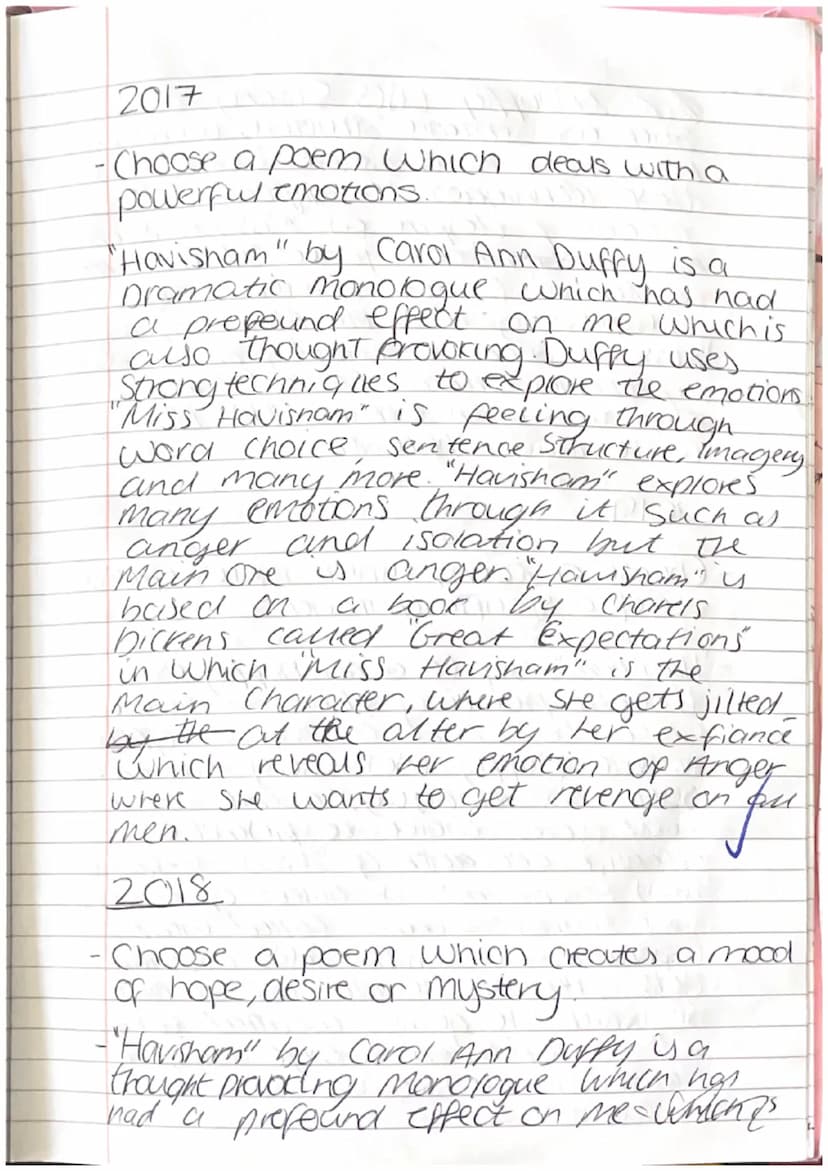 2017
- Choose a poem which deals with a
powerful emotions.
"Havisham" by Carol Ann Duffy is a
Dramatic monologue which has had
a prefound effect on me which is
also thought provoking. Duffy uses
strong techniques to explore the emotions
"Miss Havisham" is feeling through
word choice, sentence structure, imagery
and many more. "Havisham" explores
many emotions through it such as
anger and isolation but the
main one is anger. "Havisham" is
based on a book by Charels
Dickens called "Great Expectations"
in which "Miss Havisham" is the
main character, where she gets jilted
by the at the alter by her exfiancé
which reveals her emotion of Anger
where she wants to get revenge on all
men.
2018
- Choose a poem which creates a mood
of hope, desire or mystery.
- "Havisham" by Carol Ann Duffy is a
thought provoking monologue which has
had a prefound effect on me which is